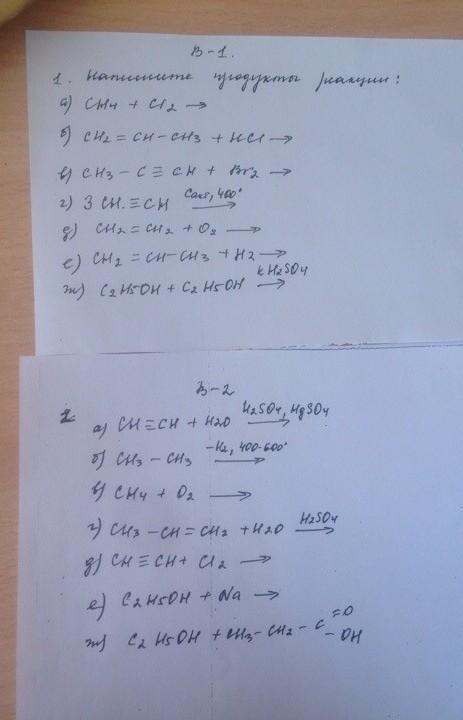 В-1.
1. Напишите продукты реакции:
а) CH4 + Cl2 →
б) CH2 = CH - CH3 + HCl →
в) CH3 - C ≡ CH + Br2 →
г) 3 CH ≡ CH Cакт, 400° →
д) CH2 = CH2 + O2 →
е) CH2 = CH - CH3 + H2 →
ж) C2H5OH + C2H5OH к H2SO4 →
В-2
1.
а) CH ≡ CH + H2O H2SO4, HgSO4 →
б) CH3 - CH3 -H2, 400-600° →
в) CH4 + O2 →
г) CH3 - CH = CH2 + H2O H2SO4 →
д) CH ≡ CH + Cl2 →
е) C2H5OH + Na →
ж) C2H5OH + CH3 - CH2 - C =O - OH